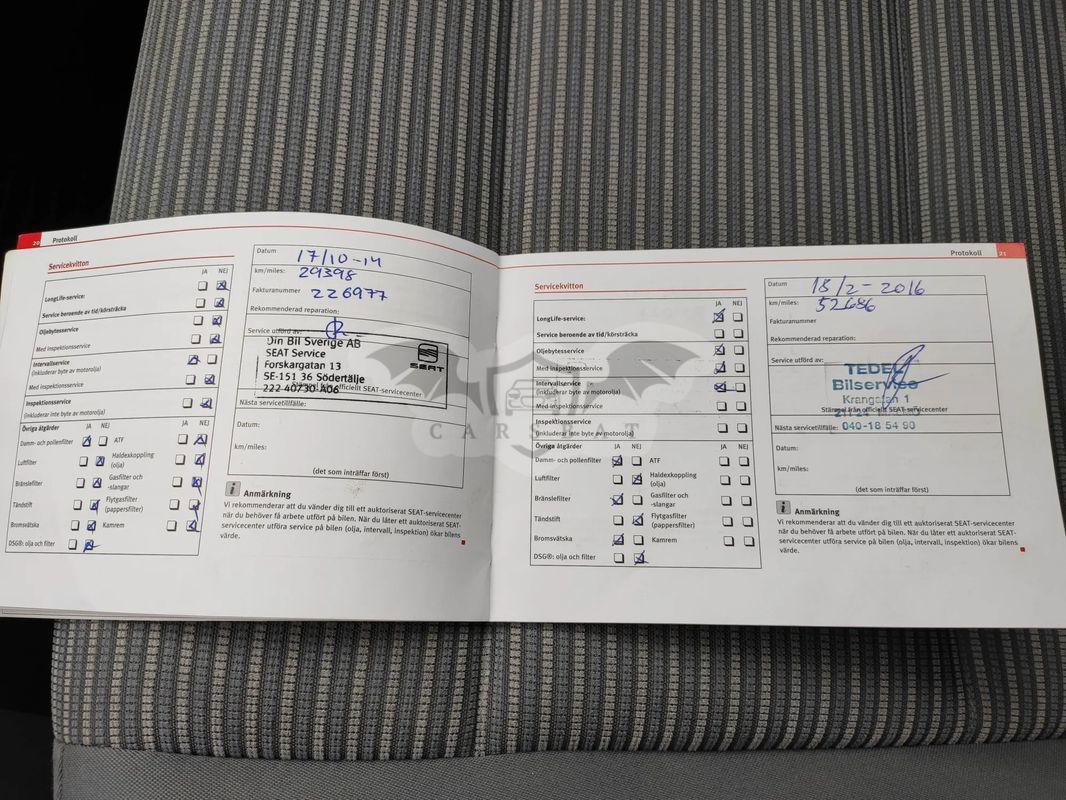 20 Protokoll
Servicekvitton
JA NEJ
LongLife-service:
Service beroende av tid/körsträcka
Oljebytesservice
Med inspektionsservice
Intervallservice
(inkluderar byte av motorolja)
Med inspektionsservice
Inspektionsservice
(inkluderar inte byte av motorolja)
Övriga åtgärder JA NEJ
Damm- och pollenfilter ATF
Luftfilter Haldexkoppling
(olja)
Bränslefilter Gasfilter och
-slangar
Tändstift Flytgasfilter
(pappersfilter)
Bromsvätska Kamrem
DSG®: olja och filter
Datum 17/10-14
km/miles: 29398
Fakturanummer 226977
Rekommenderad reparation:
Service utförd av:
Din Bil Sverige AB
SEAT Service
Forskargatan 13
SE-151 36 Södertälje
222 40730 A06
SEAT
Stämpel från officiellt SEAT-servicecenter
Nästa servicetillfälle:
Datum:
km/miles:
(det som inträffar först)
i Anmärkning
Vi rekommenderar att du vänder dig till ett auktoriserat SEAT-servicecenter
när du behöver få arbete utfört på bilen. När du låter ett auktoriserat SEAT-
servicecenter utföra service på bilen (olja, intervall, inspektion) ökar bilens
värde.
Protokoll 21
Servicekvitton
JA NEJ
LongLife-service:
Service beroende av tid/körsträcka
Oljebytesservice
Med inspektionsservice
Intervallservice
(inkluderar byte av motorolja)
Med inspektionsservice
Inspektionsservice
(inkluderar inte byte av motorolja)
Övriga åtgärder JA NEJ
Damm- och pollenfilter ATF
Luftfilter Haldexkoppling
(olja)
Bränslefilter Gasfilter och
-slangar
Tändstift Flytgasfilter
(pappersfilter)
Bromsvätska Kamrem
DSG®: olja och filter
Datum 18/2-2016
km/miles: 52686
Fakturanummer
Rekommenderad reparation:
Service utförd av:
Bilservice
Krangatan 1
Stämpel från officiellt SEAT-servicecenter
Nästa servicetillfälle: 040-18 54 90
Datum:
km/miles:
(det som inträffar först)
i Anmärkning
Vi rekommenderar att du vänder dig till ett auktoriserat SEAT-servicecenter
när du behöver få arbete utfört på bilen. När du låter ett auktoriserat SEAT-
servicecenter utföra service på bilen (olja, intervall, inspektion) ökar bilens
värde.
CARSEAT